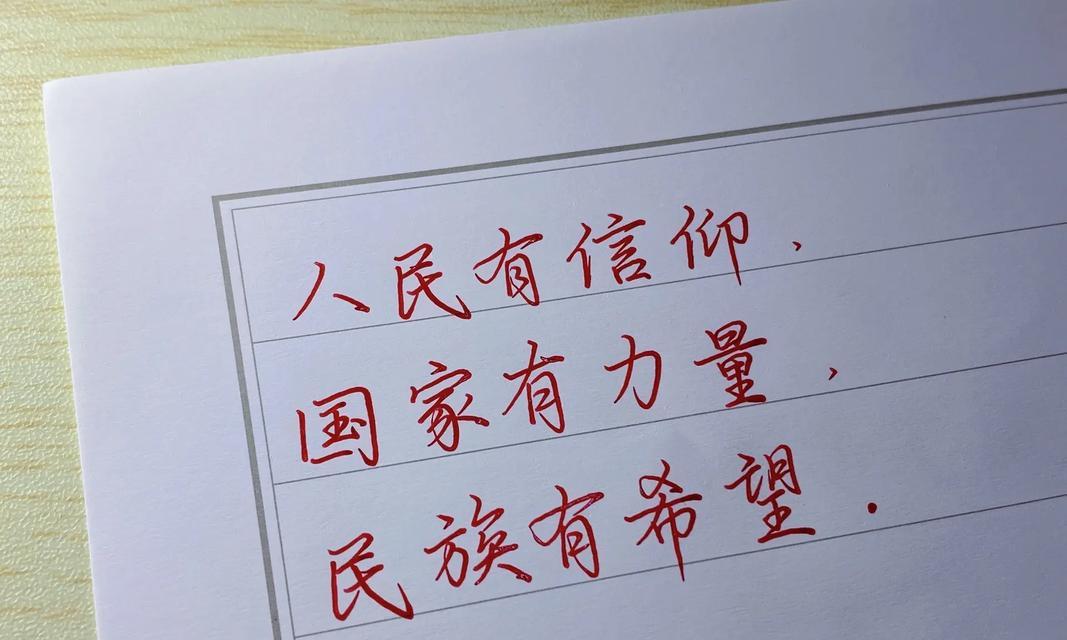 人民有信仰,
国家有力量,
民族有希望.